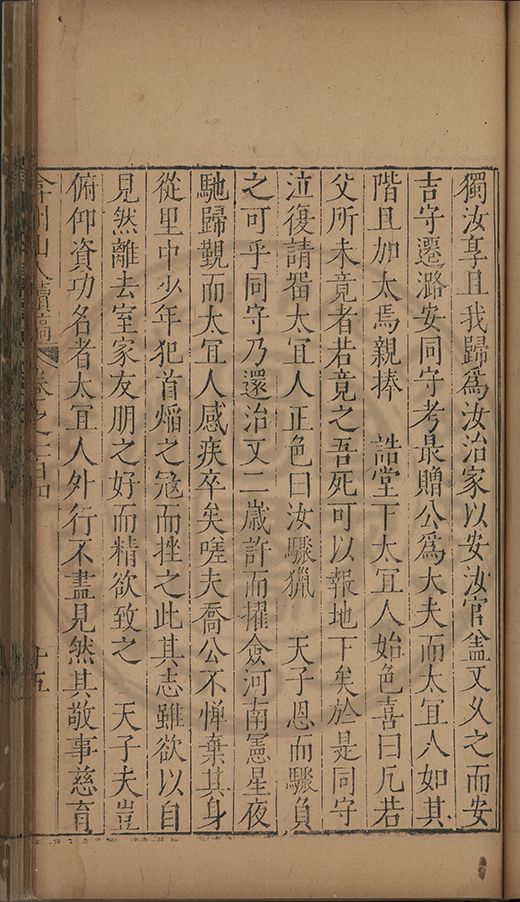 獨汝享且我歸爲汝治家以安汝官盖又乂之而安
吉守遷潞安同守考最贈公爲大夫而太冝人如其
階且加太焉親捧 誥堂下太冝人始色喜曰凢若
父所未竟者若竟之吾死可以報地下矣於是同守
泣復請畱太冝人正色曰汝驟獵 天子恩而驟負
之可乎同守乃還治又二嵗許而擢僉河南憲星夜
馳歸覲而太冝人感疾卒矣嗟夫喬公不憚棄其身
從里中少年犯首熖之冦而挫之此其志雖欲以自
見然離去室家友朋之好而精欲致之 天子夫豈
俯仰資功名者太冝人外行不盡見然其敬事慈育
弇州山人續稿 卷之一百四 十五